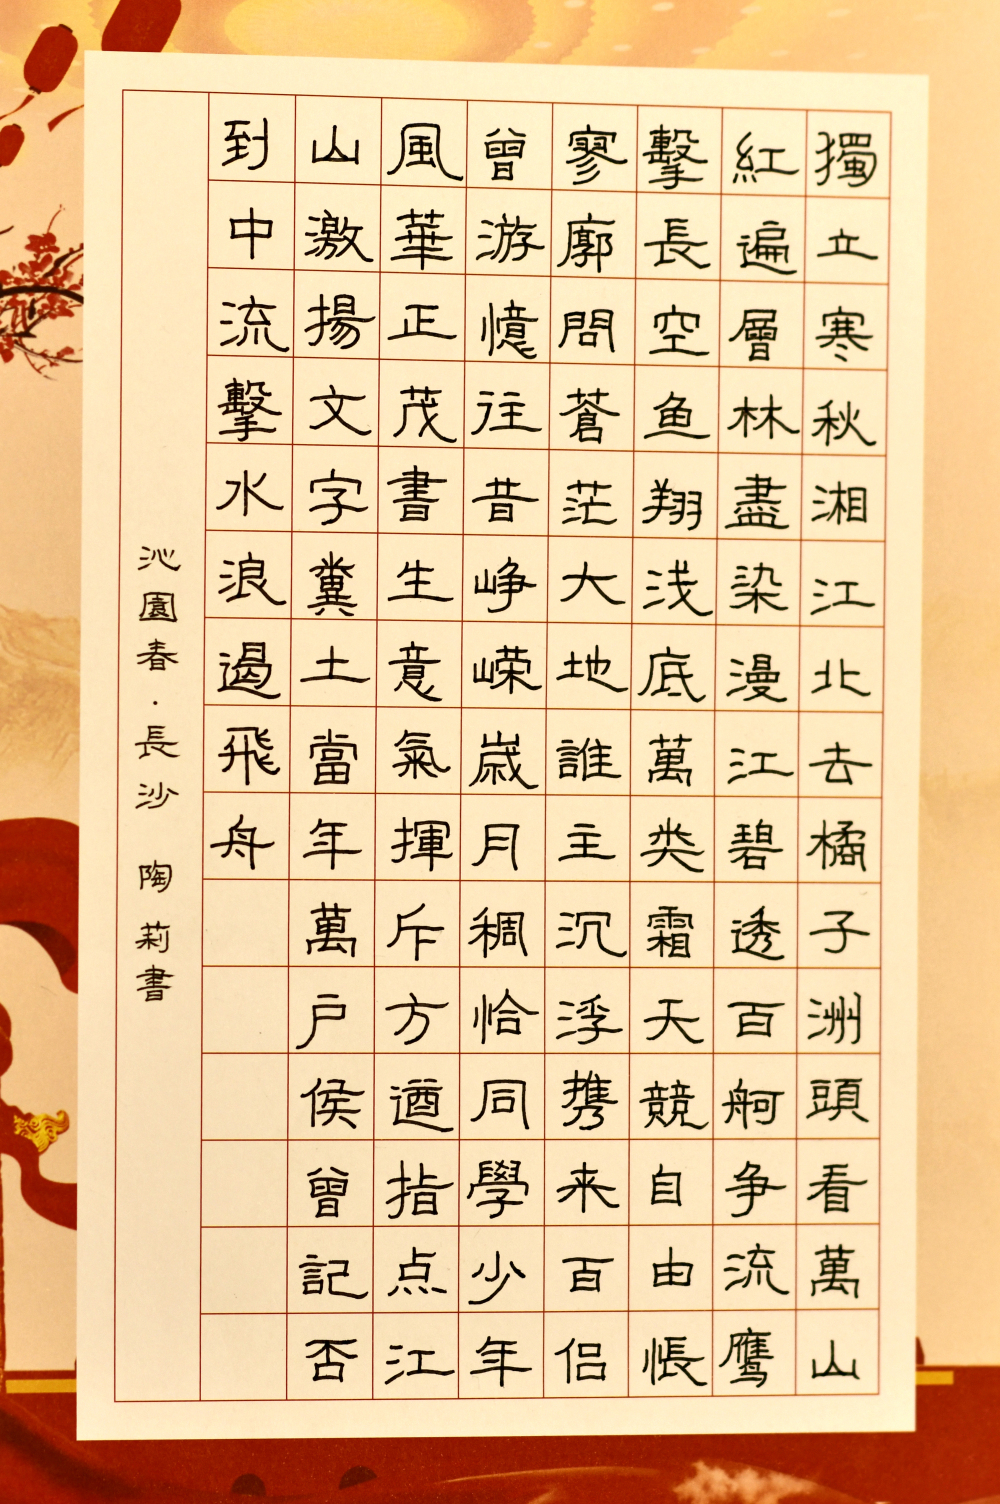 獨立寒秋湘江北去橘子洲頭看萬山
紅遍層林盡染漫江碧透百舸争流鹰
擊長空鱼翔浅底萬类霜天競自由悵
寥廓問蒼茫大地誰主沉浮携来百侣
曾游憶往昔峥嵘歲月稠恰同學少年
風華正茂書生意氣揮斥方遒指点江
山激揚文字糞土當年萬户侯曾記否
到中流擊水浪遏飛舟
沁園春·長沙 陶莉書